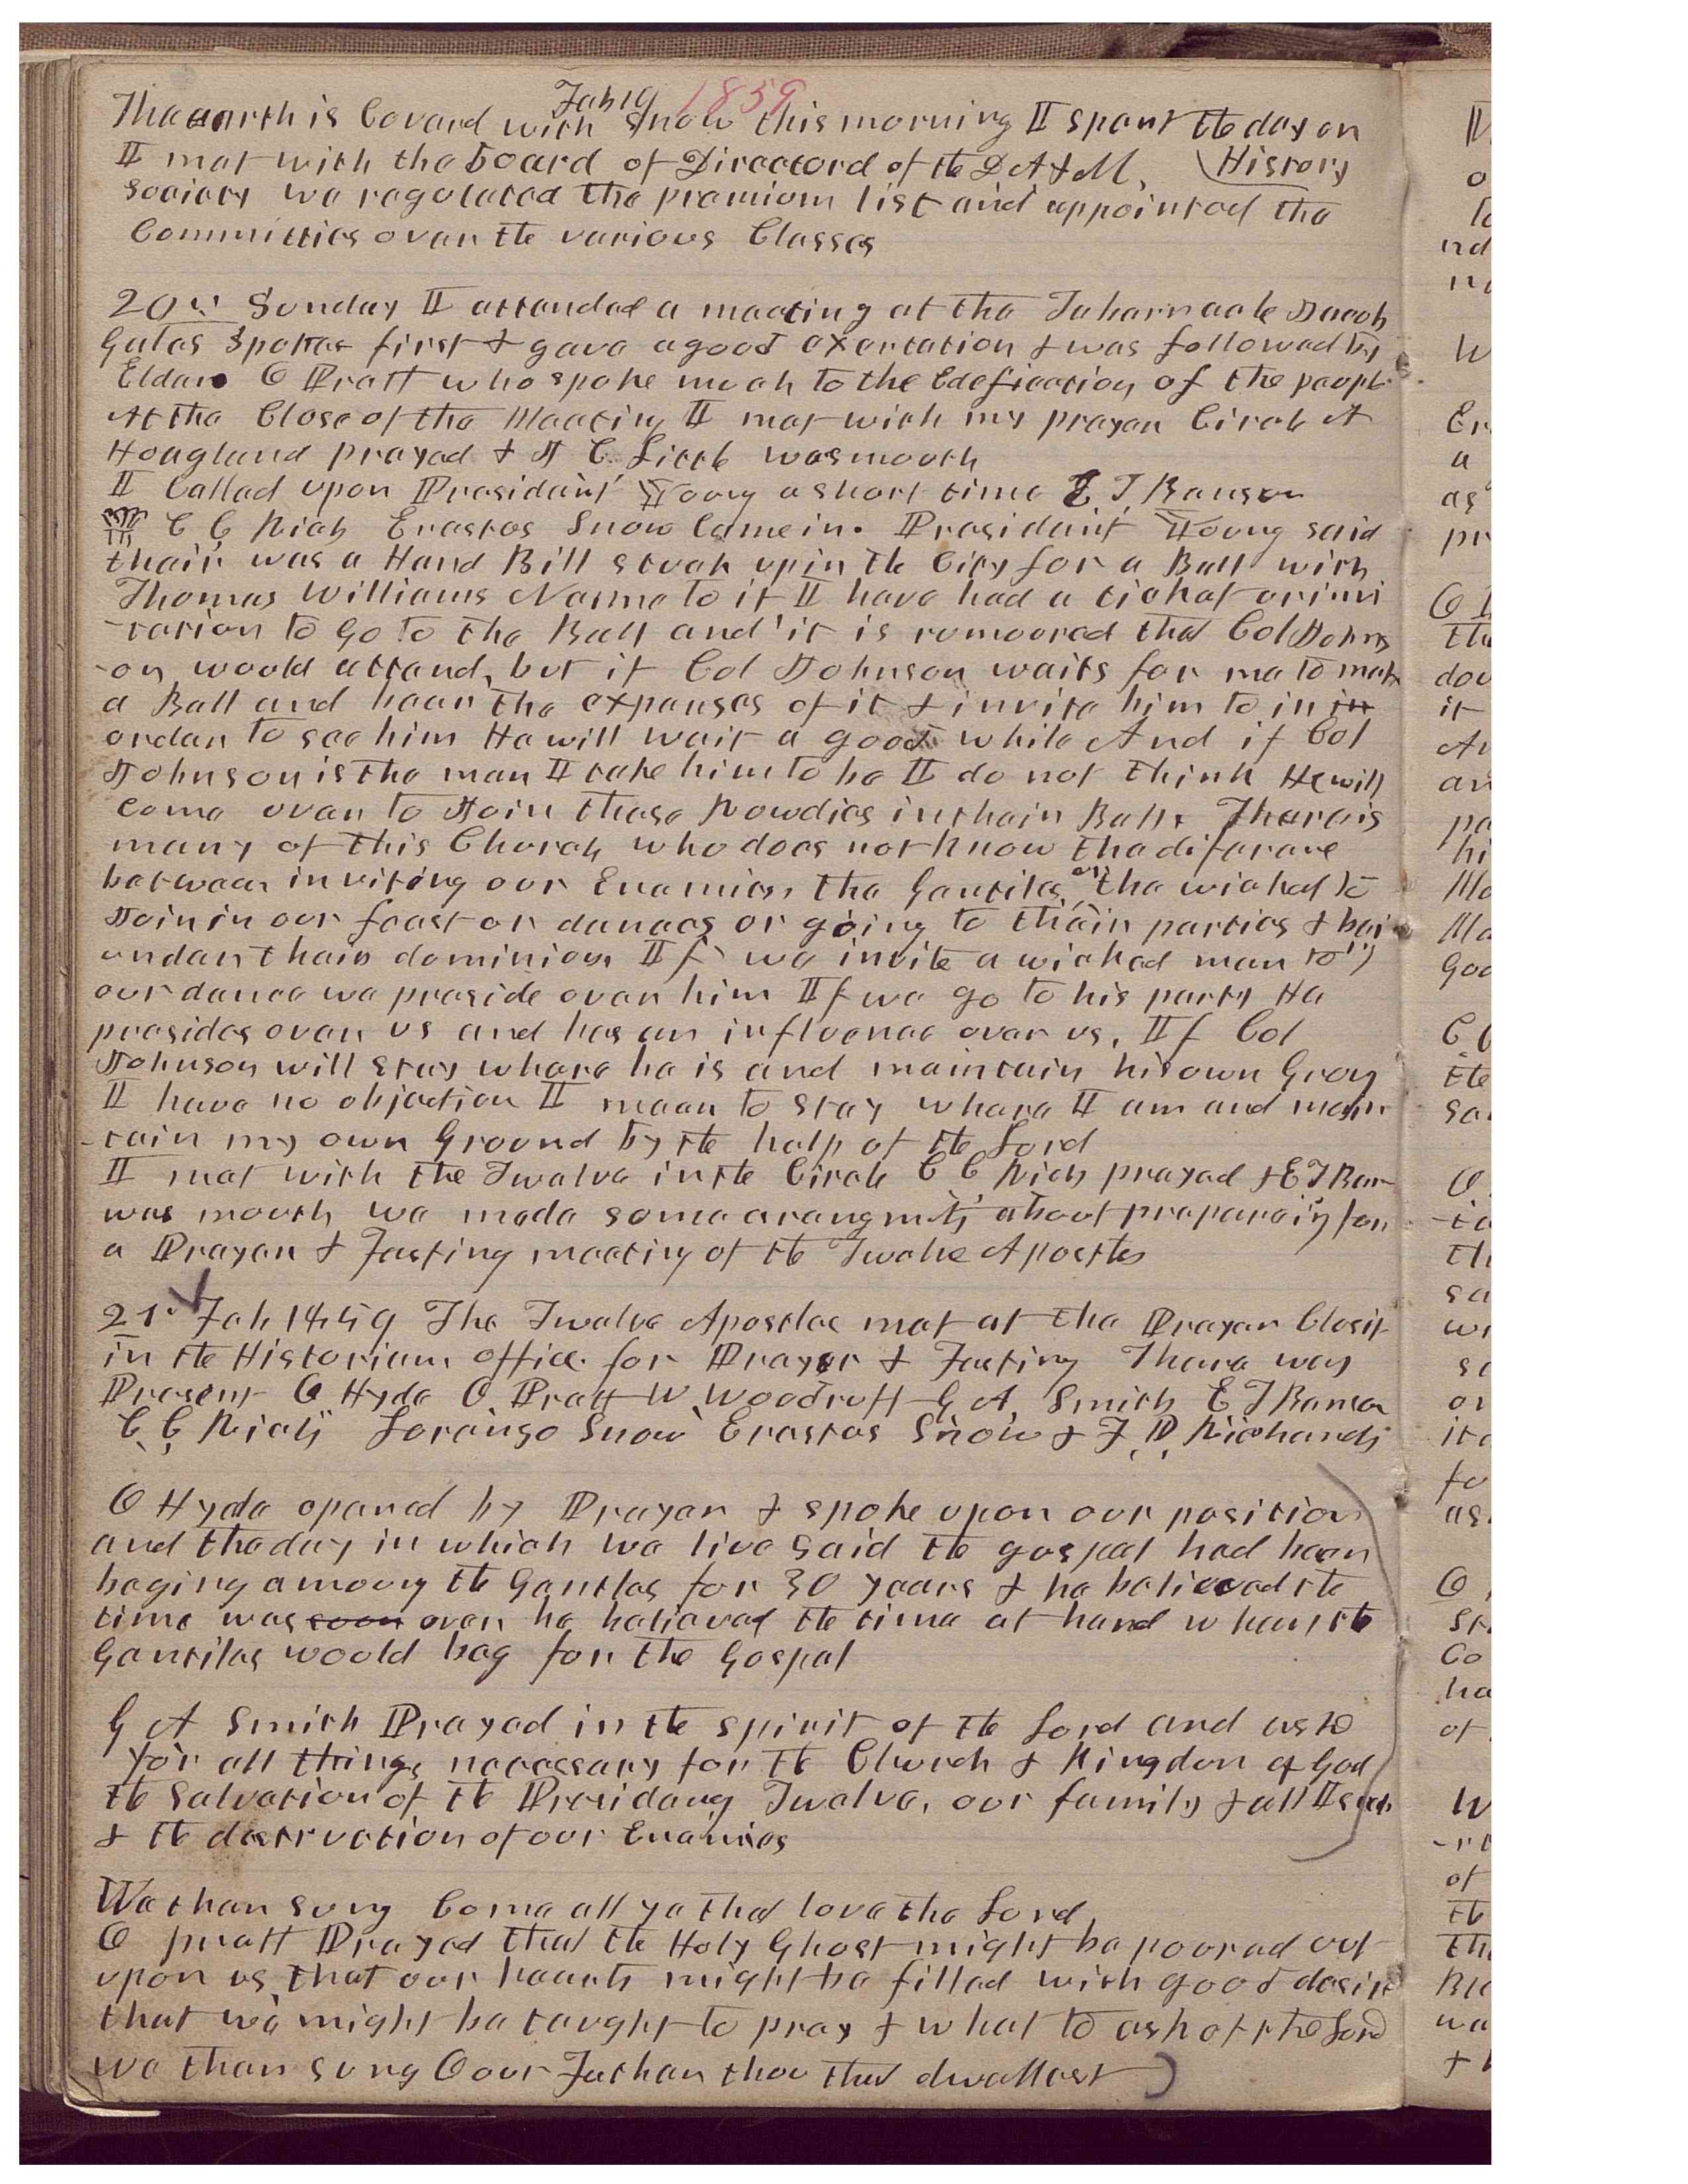 Feb 19 1859
The earth is Coverd with snow this morning I spent the day on
I met with the board of Directord of the D A & M. History
society we regulated the premium list and appointed the
Committies over the various Classes
20th Sunday I attended a meeting at the Tabernacle Jacob
Gates Spoke first & gave a good exertation & was followed by
Elder O Pratt who spoke much to the Edefication of the people
At the Close of the Meeting I met with my prayer Circle A
Hoagland prayed & J C Little was mouth
I Called upon President Young a short time E T Benson
C C Rich Erastus Snow Came in. President Young said
their was a Hand Bill stuck up in the City for a Ball with
Thomas Williams Name to it I have had a ticket or invi
-tation to Go to the Ball and it is rumoored that Col Johns
-on would attend, but if Col Johnson waits for me to make
a Ball and bear the expenses of it & invite him to in in
order to see him He will wait a good while And if Col
Johnson is the man I take him to be I do not think He will
come over to Join these Rowdies in their Ball. There is
many of this Church who does not know the diference
between inviting our Enemies, the Gentiles or the wicked to
Join in our feast or dances or going to their parties & bei
under their dominion If we invite a wicked man to
our dance we preside over him If we go to his party He
presides over us and has an influence over us, If Col
Johnson will stay where he is and maintain his own Groy
I have no objection I mean to stay where I am and main
-tain my own Ground by the help of the Lord
I met with the Twelve in the Circle C C Rich prayed & E T Ben
was mouth we made some arangmts about prepareing for
a Prayer & Fasting meeting of the Twelve Apostles
21st Feb 1859 The Twelve Apostles met at the Prayer Closit
in the Historians office for Prayer & Fasting There was
Present O Hyde O Pratt W Woodruff G A Smith E T Benson
C C Rich Lorenzo Snow Erastus Snow & F D Richards
O Hyde opened by Prayer & spoke upon our position
and the day in which we live said the gospel had been
beging among the Gentles for 30 years & he believed the
time was soon over he believed the time at hand when the
Gentiles would beg for the Gospel
G A Smith Prayed in the spirit of the Lord and asked
for all things necessary for the Church & Kingdom of God
the Salvation of the Presidency Twelve, our family & all Israel
& the destruction of our Enemies
We then sung Come all ye that love the Lord,
O pratt Prayed that the Holy Ghost might be poored out
upon us, that our hearts might be filled with good desire
that we might be taught to pray & what to ask of the Lord
we then sung O our Father thou that dwellest